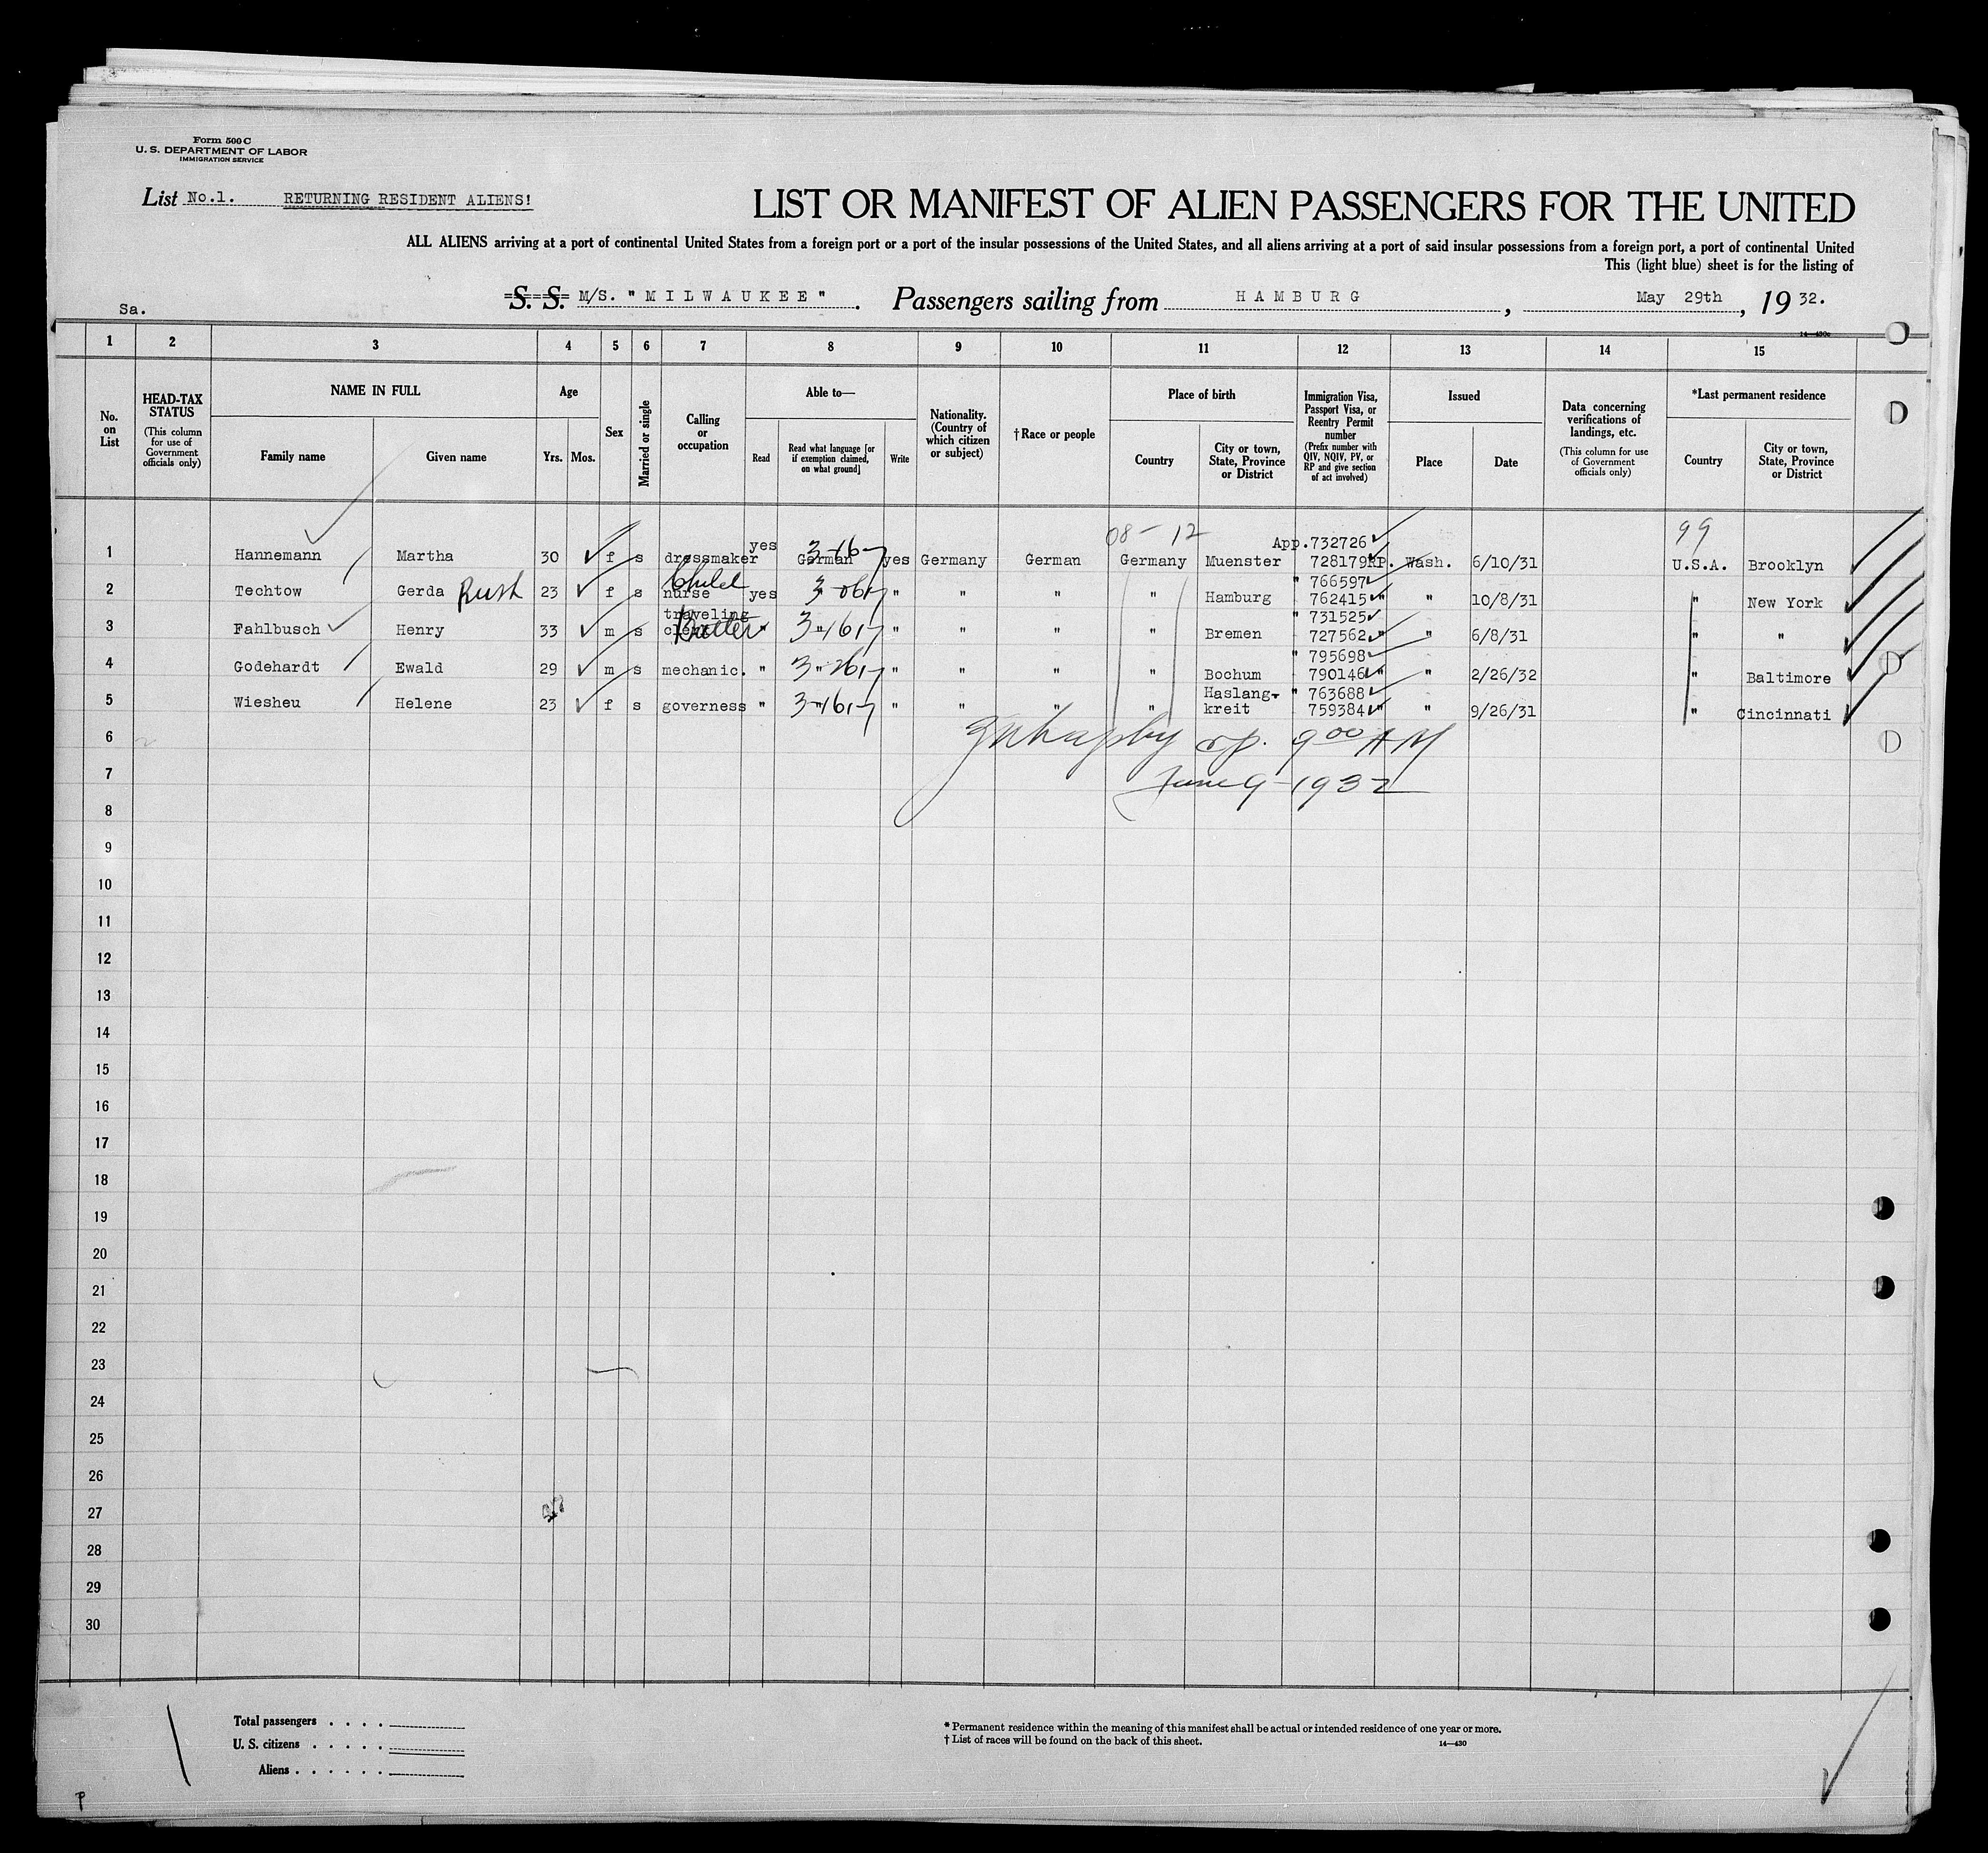 Form 500 C
U. S. DEPARTMENT OF LABOR
IMMIGRATION SERVICE
List No.1. RETURNING RESIDENT ALIENS!
LIST OR MANIFEST OF ALIEN PASSENGERS FOR THE UNITED
ALL ALIENS arriving at a port of continental United States from a foreign port or a port of the insular possessions of the United States, and all aliens arriving at a port of said insular possessions from a foreign port, a port of continental United
This (light blue) sheet is for the listing of
Sa.
S. S. M/S. "MILWAUKEE". Passengers sailing from HAMBURG, May 29th, 1932.
14—430c
1 2 3 4 5 6 7 8 9 10 11 12 13 14 15
No. on List
HEAD-TAX STATUS (This column for use of Government officials only)
NAME IN FULL
Family name
Given name
Age
Yrs. Mos.
Sex
Married or single
Calling or occupation
Able to—
Read
Read what language [or if exemption claimed, on what ground]
Write
Nationality. (Country of which citizen or subject)
†Race or people
Place of birth
Country
City or town, State, Province or District
Immigration Visa, Passport Visa, or Reentry Permit number (Prefix number with QIV, NQIV, PV, or RP and give section of act involved)
Issued
Place
Date
Data concerning verifications of landings, etc. (This column for use of Government officials only)
*Last permanent residence
Country
City or town, State, Province or District
08-12 99
1 Hannemann Martha 30 f s dressmaker yes German yes Germany German Germany Muenster App.732726 728179RP. Wash. 6/10/31 U.S.A. Brooklyn
2 Techtow Gerda Rush 23 f s child nurse yes " " " " " Hamburg " 766597 762415 " " 10/8/31 " New York
3 Fahlbusch Henry 33 m s traveling clerk " " " " " " Bremen " 731525 727562 " " 6/8/31 " "
4 Godehardt Ewald 29 m s mechanic. " " " " " " Bochum " 795698 790146 " " 2/26/32 " Baltimore
5 Wiesheu Helene 23 f s governess " " " " " " Haslang-kreit " 763688 759384 " " 9/26/31 " Cincinnati
6 9 00 AM
7 June 9-1932
8
9
10
11
12
13
14
15
16
17
18
19
20
21
22
23
24
25
26
27
28
29
30
Total passengers . . . .
U. S. citizens . . . . .
Aliens . . . . . .
* Permanent residence within the meaning of this manifest shall be actual or intended residence of one year or more.
† List of races will be found on the back of this sheet.
14—430
P